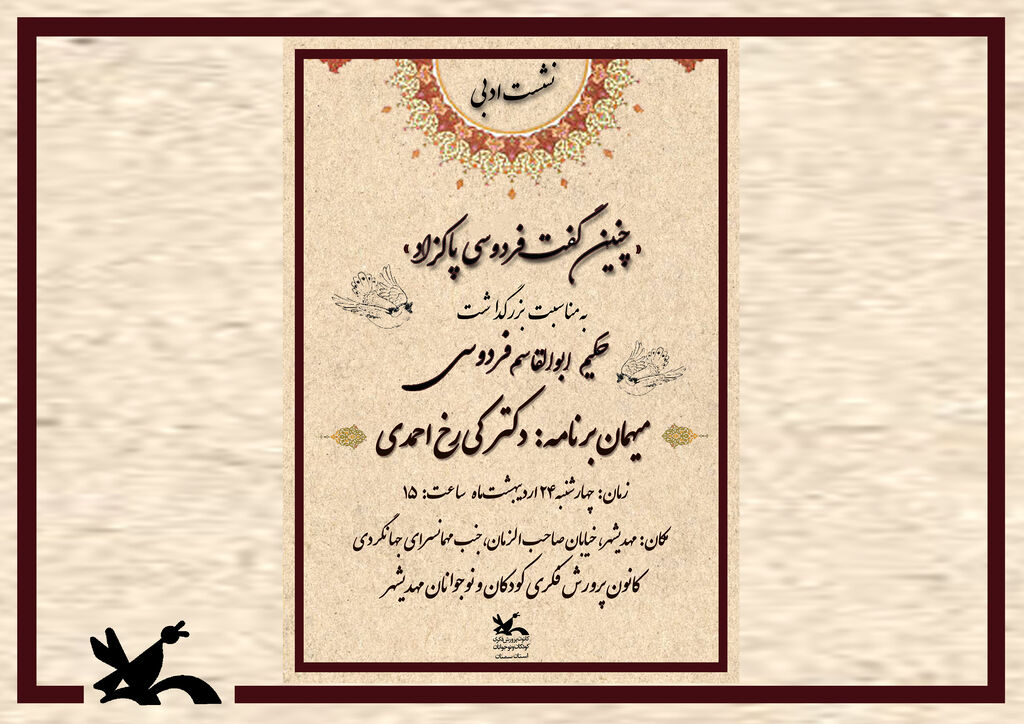 نشست ادبی
«چنین گفت فردوسی پاکزاد»
به مناسبت بزرگداشت
حکیم ابوالقاسم فردوسی
میهمان برنامه: دکتر کی رخ احمدی
زمان: چهارشنبه ۲۴ اردیبهشت ماه ساعت: ۱۵
مکان: مهدیشهر، خیابان صاحب الزمان، جنب مهمانسرای جهانگردی
کانون پرورش فکری کودکان و نوجوانان مهدیشهر
کانون پرورش فکری
کودکان و نوجوانان
استان سمنان